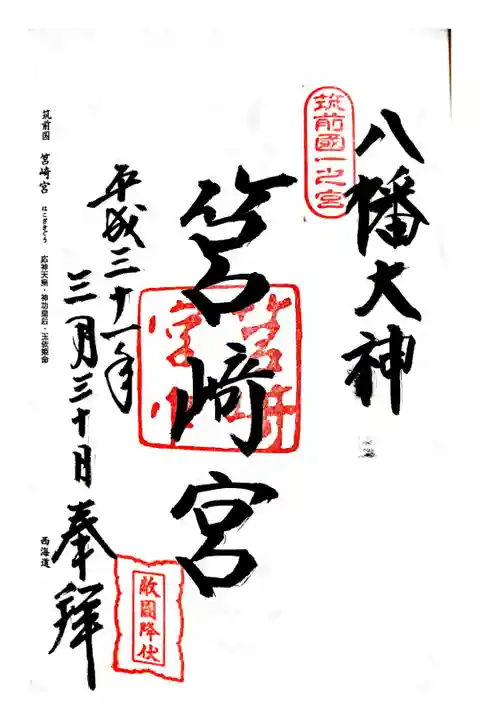 八幡大神
筑前國一之宮
筥崎宮
筥崎宮印
平成三十一年
三月三十日
奉拝
敵國降伏
筑前国 筥崎宮 はこざきぐう 応神天皇・神功皇后・玉依姫命 西海道